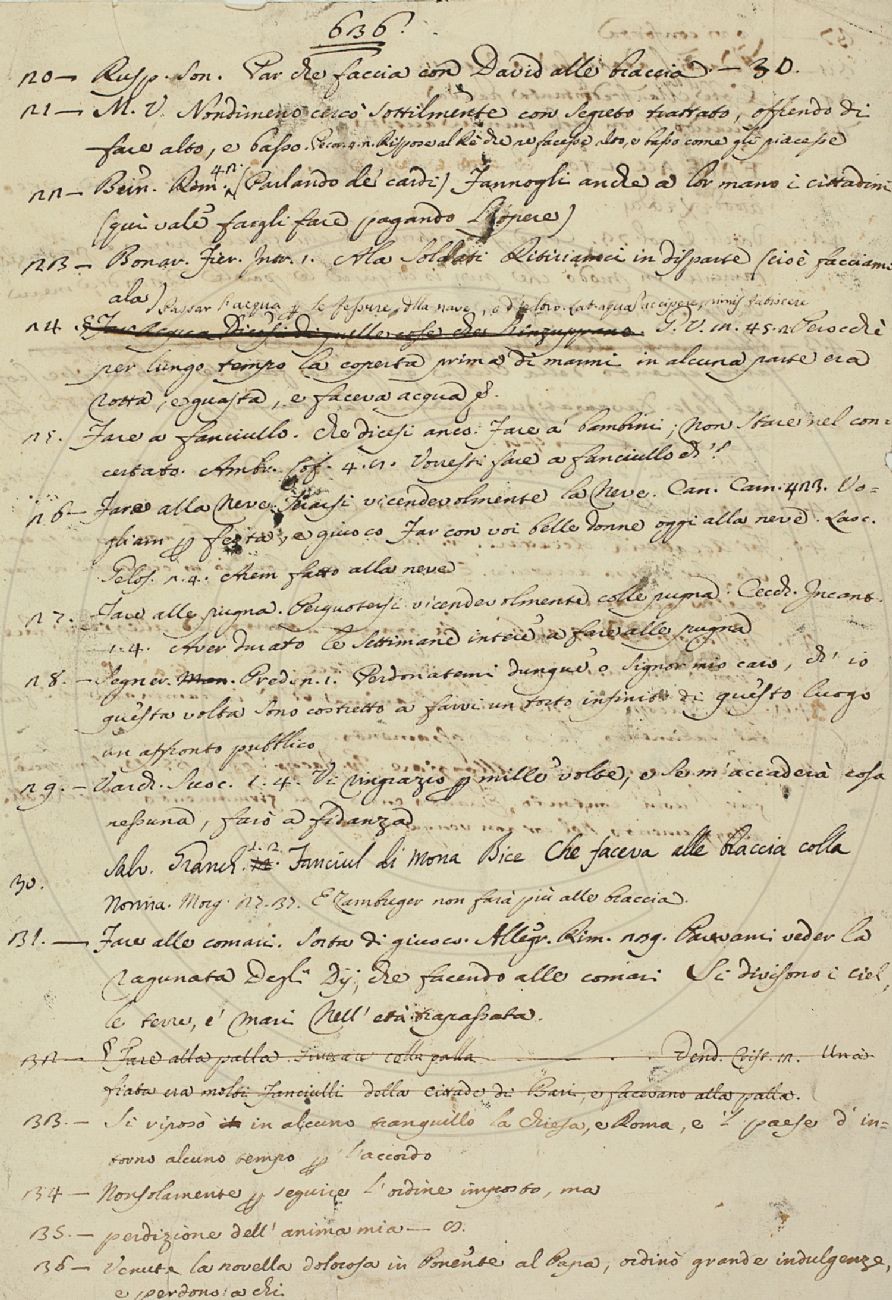 636.
120 — Rusp. Son. Par che faccia con David alle braccia. — 30.
121 — M. V. Nondimeno cercò sottilmente con segreto trattato, offrendo di
fare alto, e basso. Rispose al Rè che ne facesse alto, e basso come gli piacesse
122 — Rim. (Parlando de' cardi) Fannogli anche a lor mano i cittadini
(qui vale fargli fare pagando l'opere)
123 — Bonar. Fier. Intr. 1. Ala Soldati Ritiriamoci in disparte (cioè facciamo
ala)
124. G. V. 12. 45. 2 Perocchè
per lungo tempo la coperta prima di marmi in alcuna parte era
rotta, e guasta, e faceva acqua
125. Fare a fanciullo. che dicesi anco: Fare a' bambini; Non stare nel con=
certato. Ambr. Cof. 4. Vorresti fare a fanciullo eh'?
126 — Fare alla Neve. vicendevolmente la Neve. Can. Carn. 423. Vo=
gliam p festa, e giuoco Far con voi belle donne oggi alla neve. Lasc.
Gelos. 1. 4. Avem fatto alla neve
127. Fare alle pugna. Perquotersi vicendevolmente colle pugna. Cecch. Incant.
1. 4. Aver durato le settimane intere a fare alle pugna
128. — Segner. Pred. Perdonatemi dunque o Signor mio caro, ch' io
questa volta sono costretto a farvi un torto infinito di questo luogo
un affronto pubblico
129. — Varch. Suoc. 1. 4. Vi ringrazio p mille volte, e se m'accaderà cosa
nessuna, farò a fidanza
30. Salv. Granch. 1. 2. Fanciul di Mona Bice Che faceva alle braccia colla
Nonna. Morg. 27. 37. E Zambuger non farà più alle braccia.
131. — Fare alle comari. Sorta di giuoco. Allegr. Rim. 209. Parvami veder la
ragunata Degli Dij, che facendo alle comari Si divisono i ciel,
le terre, e' mari Nell' età trapassata.
132 — Fare alla palla colla palla Una
fiata era molti Fanciulli della Citade di Bari, e facevano alla palla.
133. — Si riposò in alcuno tranquillo la chiesa, e Roma, e 'l paese d' in=
torno alcuno tempo p l'accordo
134 — Nonsolamente p seguire l'ordine imposto, ma
135. — perdizione dell' anima mia —
136 — Venuta la novella dolorosa in Ponente al Papa, ordinò grande indulgenze,
e perdono a chi